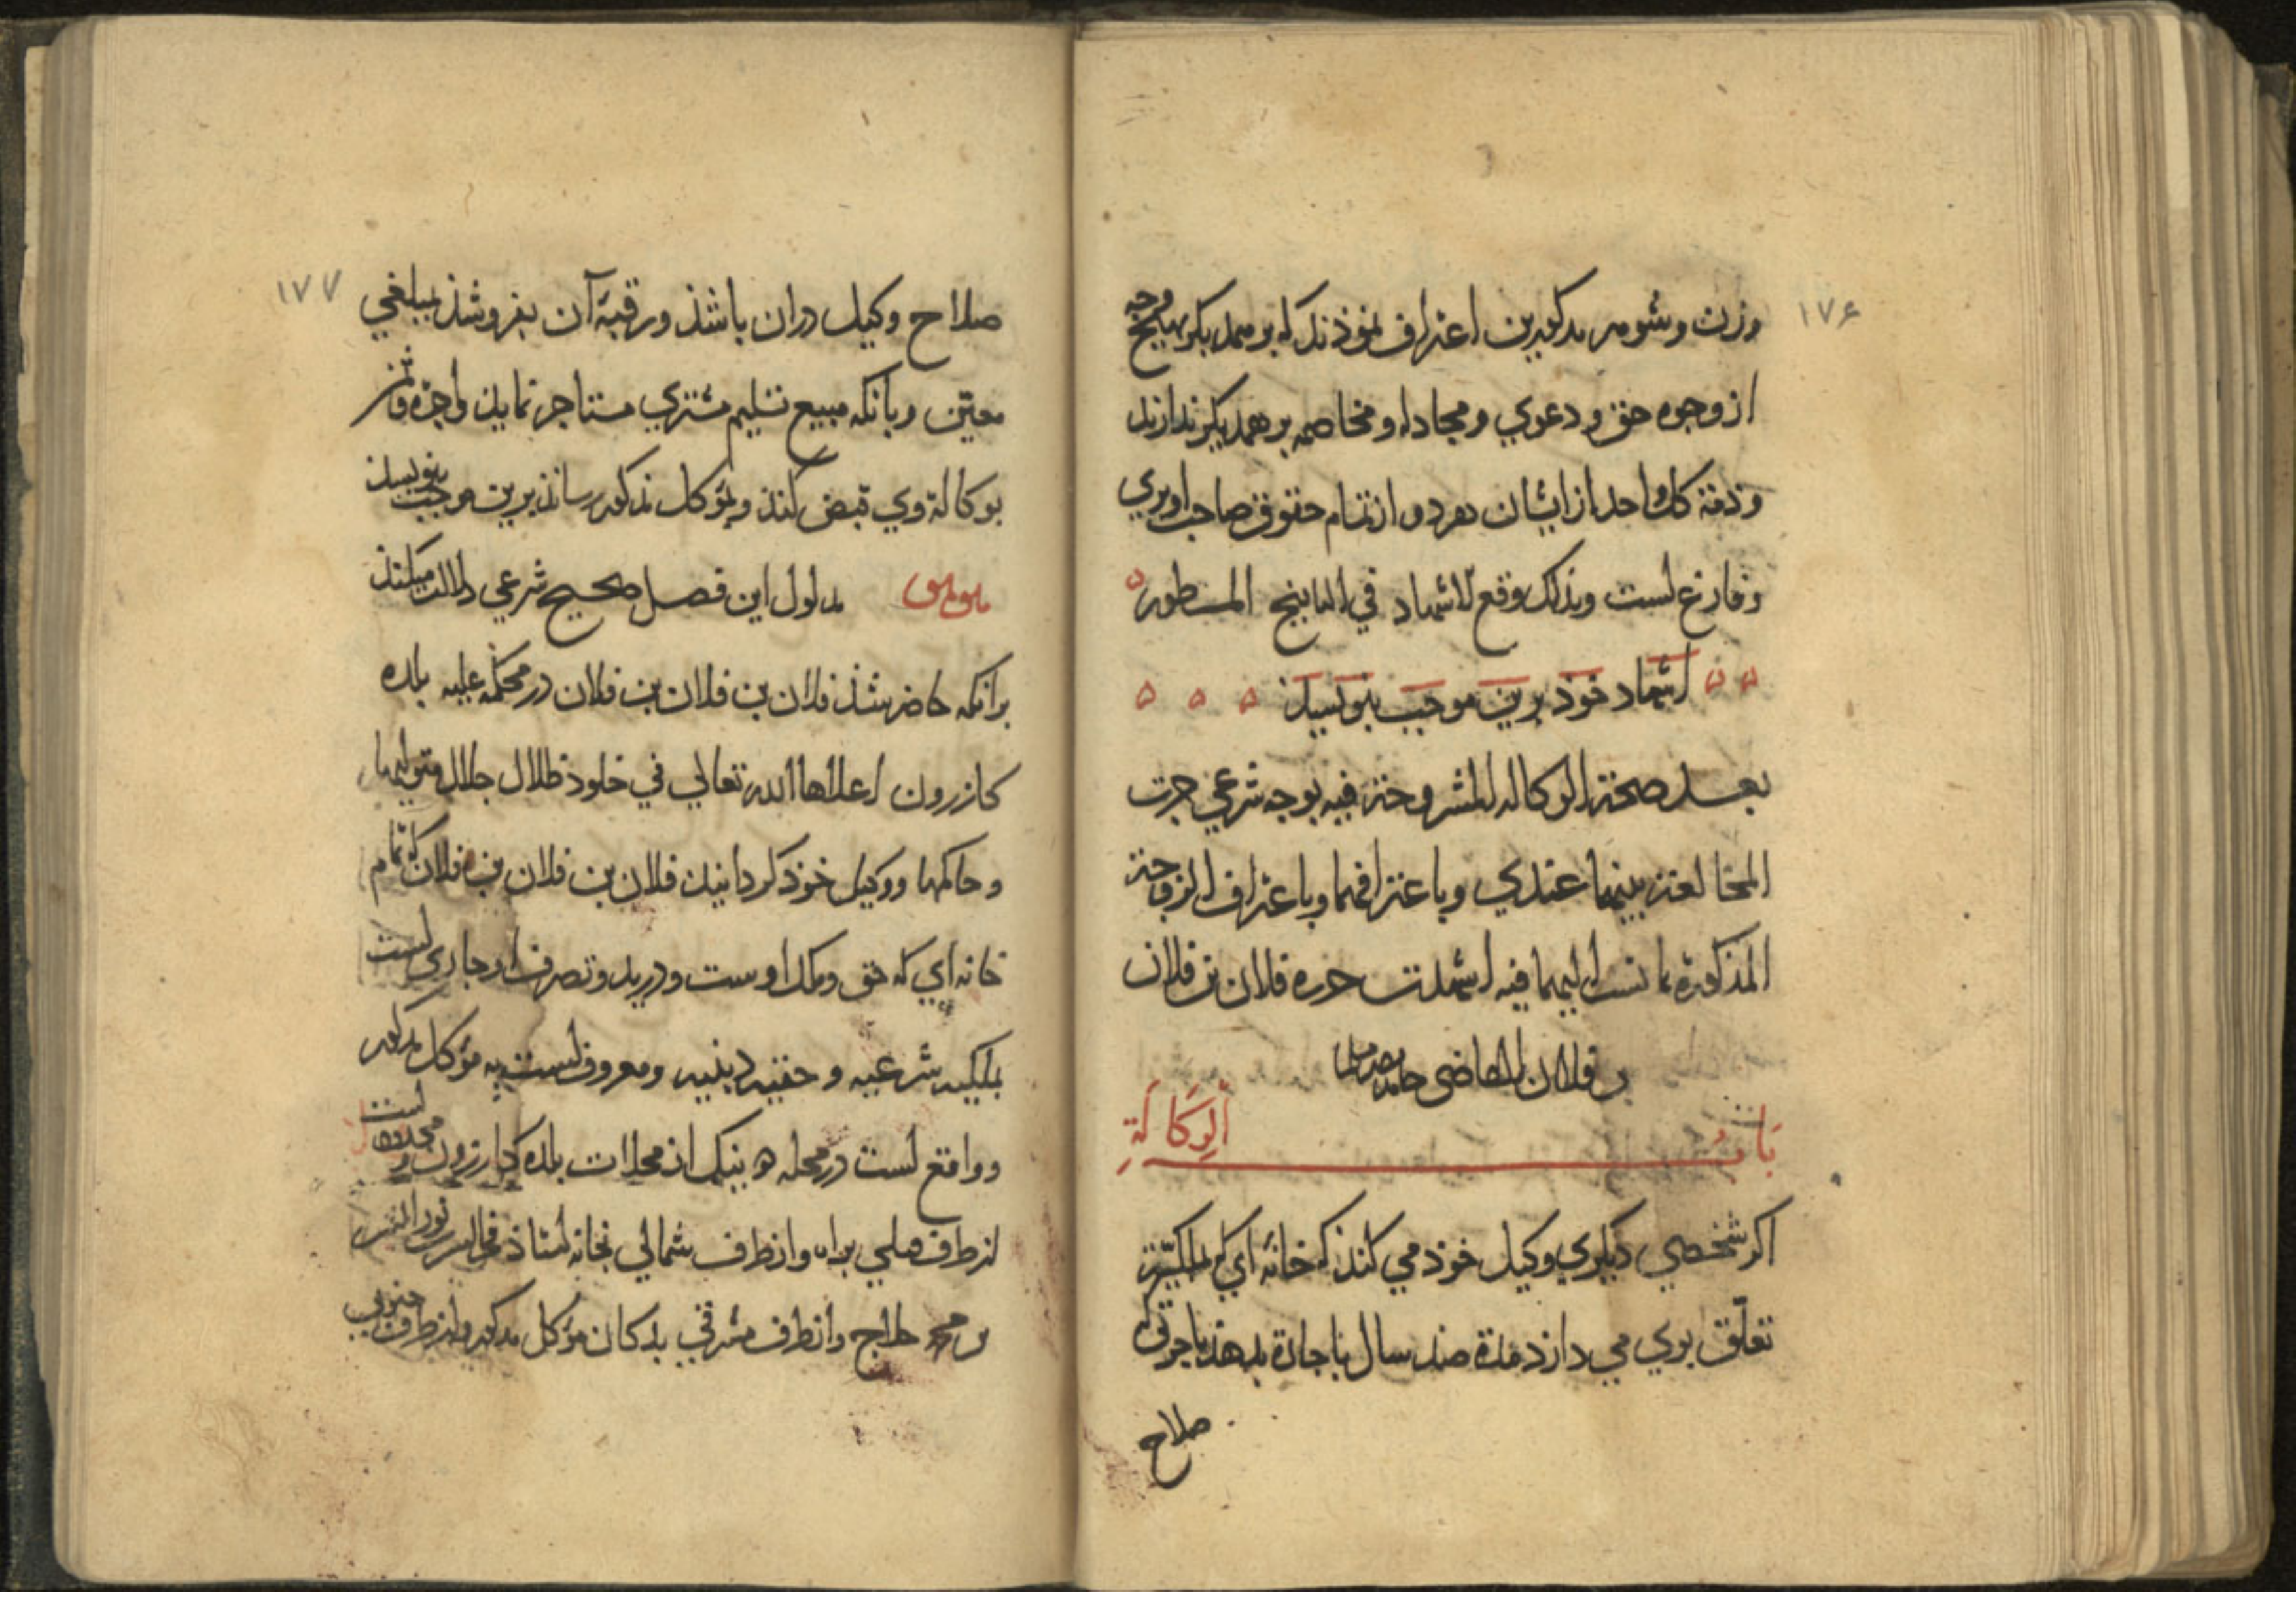 ۱۷۶
وزن وشوهر مذکورین اعتراف نموذند که بر همدیکر بهیچ وجه
از وجوه حق ودعوي ومجادله ومخاصمه بر همدیکر ندارند
وذمة کل واحد از ایشان هر دو از تمام حقوق صاحب او بري
وفارغ است وبذلك وقع الاشهاد في التاريخ المسطور
اشهاد خوذ برین موجب بنویسذ
بعد صحة الوکاله المشروحة فیه بوجه شرعي جرت
المخالعة بینهما عندي وباعترافهما وباعتراف الزوجة
المذکورة بما نسب الیهما فیه اشهدت حرره فلان بن فلان
بن فلان القاضی حامدا مصلیا
بَابُ الوَکَالَةِ
اکر شخصي دیکري وکیل خوذ مي کند که خانه اي که بمالکیّة
تعلّق بوي مي دارد مدة صد سال باجارة بدهذ باجرتي که
صلاح
۱۷۷
صلاح وکیل دران باشذ ورقبهٔ آن بفروشذ بمبلغي
معیّن وبانکه مبیع تسلیم مشتري مستاجر نماید واجرة وثمن
بوکالة وي قبض کنذ وبمؤکل مذکور رسانذ برین موجب بنویسذ
مدلول این فصل صحیح شرعي دلالت میکنذ
برانکه حاضر شذ فلان بن فلان بن فلان در محکمه علیه بلده
کازرون اعلاها الله تعالي في خلود ظلال جلال متولیها
وحاکمها ووکیل خوذ کردانید فلان بن فلان بن فلان که تمام
خانه اي که حق وملک اوست ودر ید وتصرف او جاري است
بملکیه شرعیه وحقیه دینیه ومعروف است به مؤکل مذکور
وواقع است در محله از محلات بلده کازرون ومحدود است
از طرف براه واز طرف شمالي بخانه استاذ نور الدین
بن حلاج واز طرف شرقي بدکان مؤکل مذکور واز طرف جنوبي